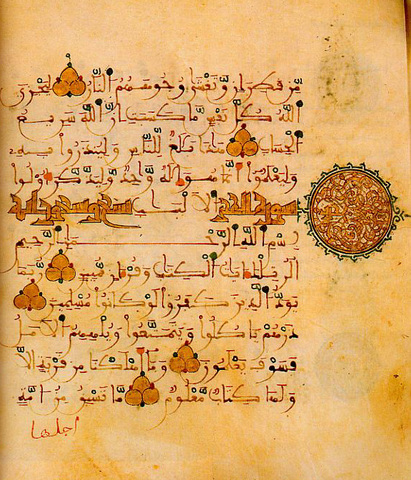 مِّن قطران وتغشى وجوههم النار ليجزي
الله كل نفس ما كسبت إن الله سريع
الحساب هذا بلغ للناس ولينذروا به
وليعلموا أنما هو إله وحد وليذكر أولوا
سورة الحجر الألبب تسع وتسعون آية
بسم الله الرحمن الرحيم
الر تلك ءايت الكتب وقرءان مبين ربما
يود الذين كفروا لو كانوا مسلمين
ذرهم ياكلوا ويتمتعوا ويلههم الأمل
فسوف يعلمون وما أهلكنا من قرية إلا
ولها كتاب معلوم ما تسبق من أمة
أجلها